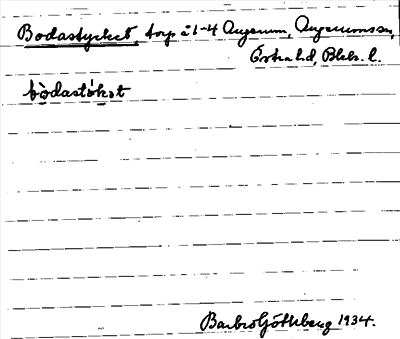 Bodastycket, torp å 1-4 Augerum, Augerums sn,
Östra hd, Blek. l.
bòdastỏkət
Barbro Göthberg 1934.